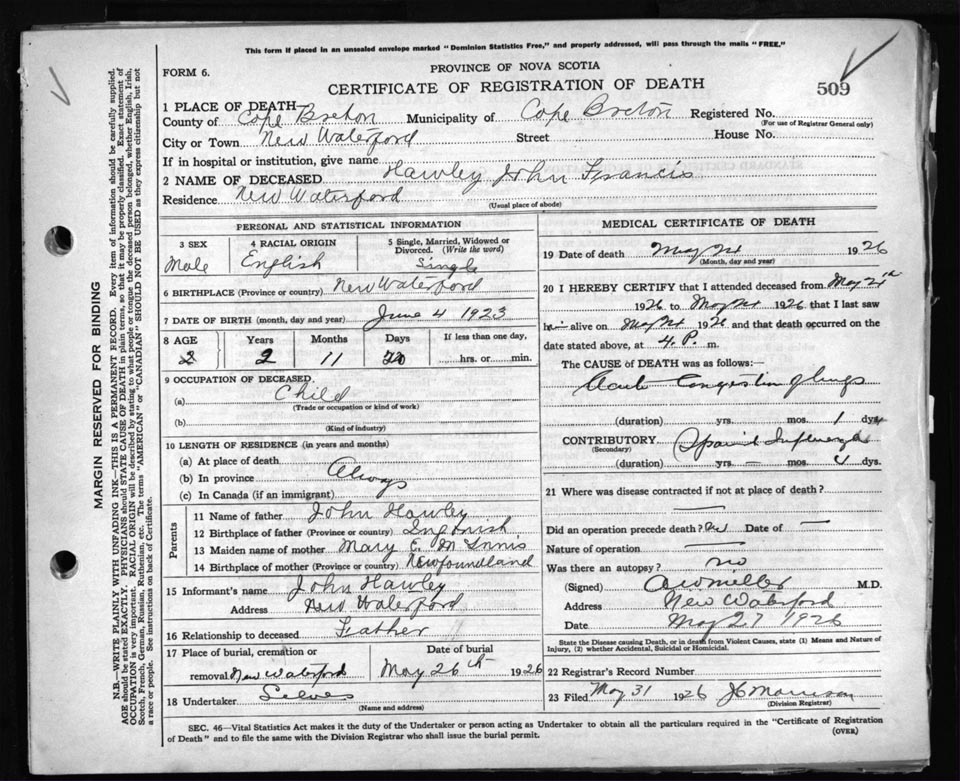 This form if placed in an unsealed envelope marked "Dominion Statistics Free," and properly addressed, will pass through the mails "FREE."
FORM 6.
PROVINCE OF NOVA SCOTIA
CERTIFICATE OF REGISTRATION OF DEATH
509
1 PLACE OF DEATH
County of Cape Breton Municipality of Cape Breton Registered No.
(For use of Registrar General only)
City or Town New Waterford Street House No.
If in hospital or institution, give name
2 NAME OF DECEASED Hawley John Francis
Residence New Waterford
(Usual place of abode)
PERSONAL AND STATISTICAL INFORMATION
3 SEX 4 RACIAL ORIGIN 5 Single, Married, Widowed or Divorced. (Write the word)
Male English Single
6 BIRTHPLACE (Province or country) New Waterford
7 DATE OF BIRTH (month, day and year) June 4 1923
8 AGE Years Months Days If less than one day,
2 11 20 hrs. or min.
9 OCCUPATION OF DECEASED
(a) Child
(Trade or occupation or kind of work)
(b)
(Kind of industry)
10 LENGTH OF RESIDENCE (in years and months)
(a) At place of death
(b) In province Always
(c) In Canada (if an immigrant)
Parents
11 Name of father John Hawley
12 Birthplace of father (Province or country) Ingonish
13 Maiden name of mother Mary E. McInnis
14 Birthplace of mother (Province or country) Newfoundland
15 Informant's name John Hawley
Address New Waterford
16 Relationship to deceased Father
17 Place of burial, cremation or Date of burial
removal New Waterford May 26th 1926
18 Undertaker
(Name and address)
MEDICAL CERTIFICATE OF DEATH
19 Date of death May 24 1926
(Month, day and year)
20 I HEREBY CERTIFY that I attended deceased from May
1926 to May 24 1926 that I last saw
him alive on May 24 1926 and that death occurred on the
date stated above, at 4 P. m.
The CAUSE of DEATH was as follows:—
Acute Congestion of lungs
(duration) yrs. mos. 1 dys.
CONTRIBUTORY Influenza
(Secondary)
(duration) yrs. — mos. 4 dys.
21 Where was disease contracted if not at place of death?
Did an operation precede death? No Date of —
Nature of operation —
Was there an autopsy? no
(Signed) Miller M.D.
Address New Waterford
Date May 27 1926
State the Disease causing Death, or in death from Violent Causes, state (1) Means and Nature of
Injury, (2) whether Accidental, Suicidal or Homicidal.
22 Registrar's Record Number
23 Filed May 31 1926 Morrison
(Division Registrar)
SEC. 46—Vital Statistics Act makes it the duty of the Undertaker or person acting as Undertaker to obtain all the particulars required in the "Certificate of Registration
of Death" and to file the same with the Division Registrar who shall issue the burial permit.
(OVER)
MARGIN RESERVED FOR BINDING
N.B.—WRITE PLAINLY WITH UNFADING INK—THIS IS A PERMANENT RECORD. Every item of information should be carefully supplied.
AGE should be stated EXACTLY. PHYSICIANS should STATE CAUSE OF DEATH in plain terms, so that it may be properly classified. Exact statement of
OCCUPATION is very important. RACIAL ORIGIN will be described by stating to what people or tongue the deceased person belonged, whether English, Irish,
Scotch, French, German, Russian, Ruthenian, etc. The terms "AMERICAN" or "CANADIAN" SHOULD NOT BE USED as they express citizenship but not
a race or people. See instructions on back of Certificate.